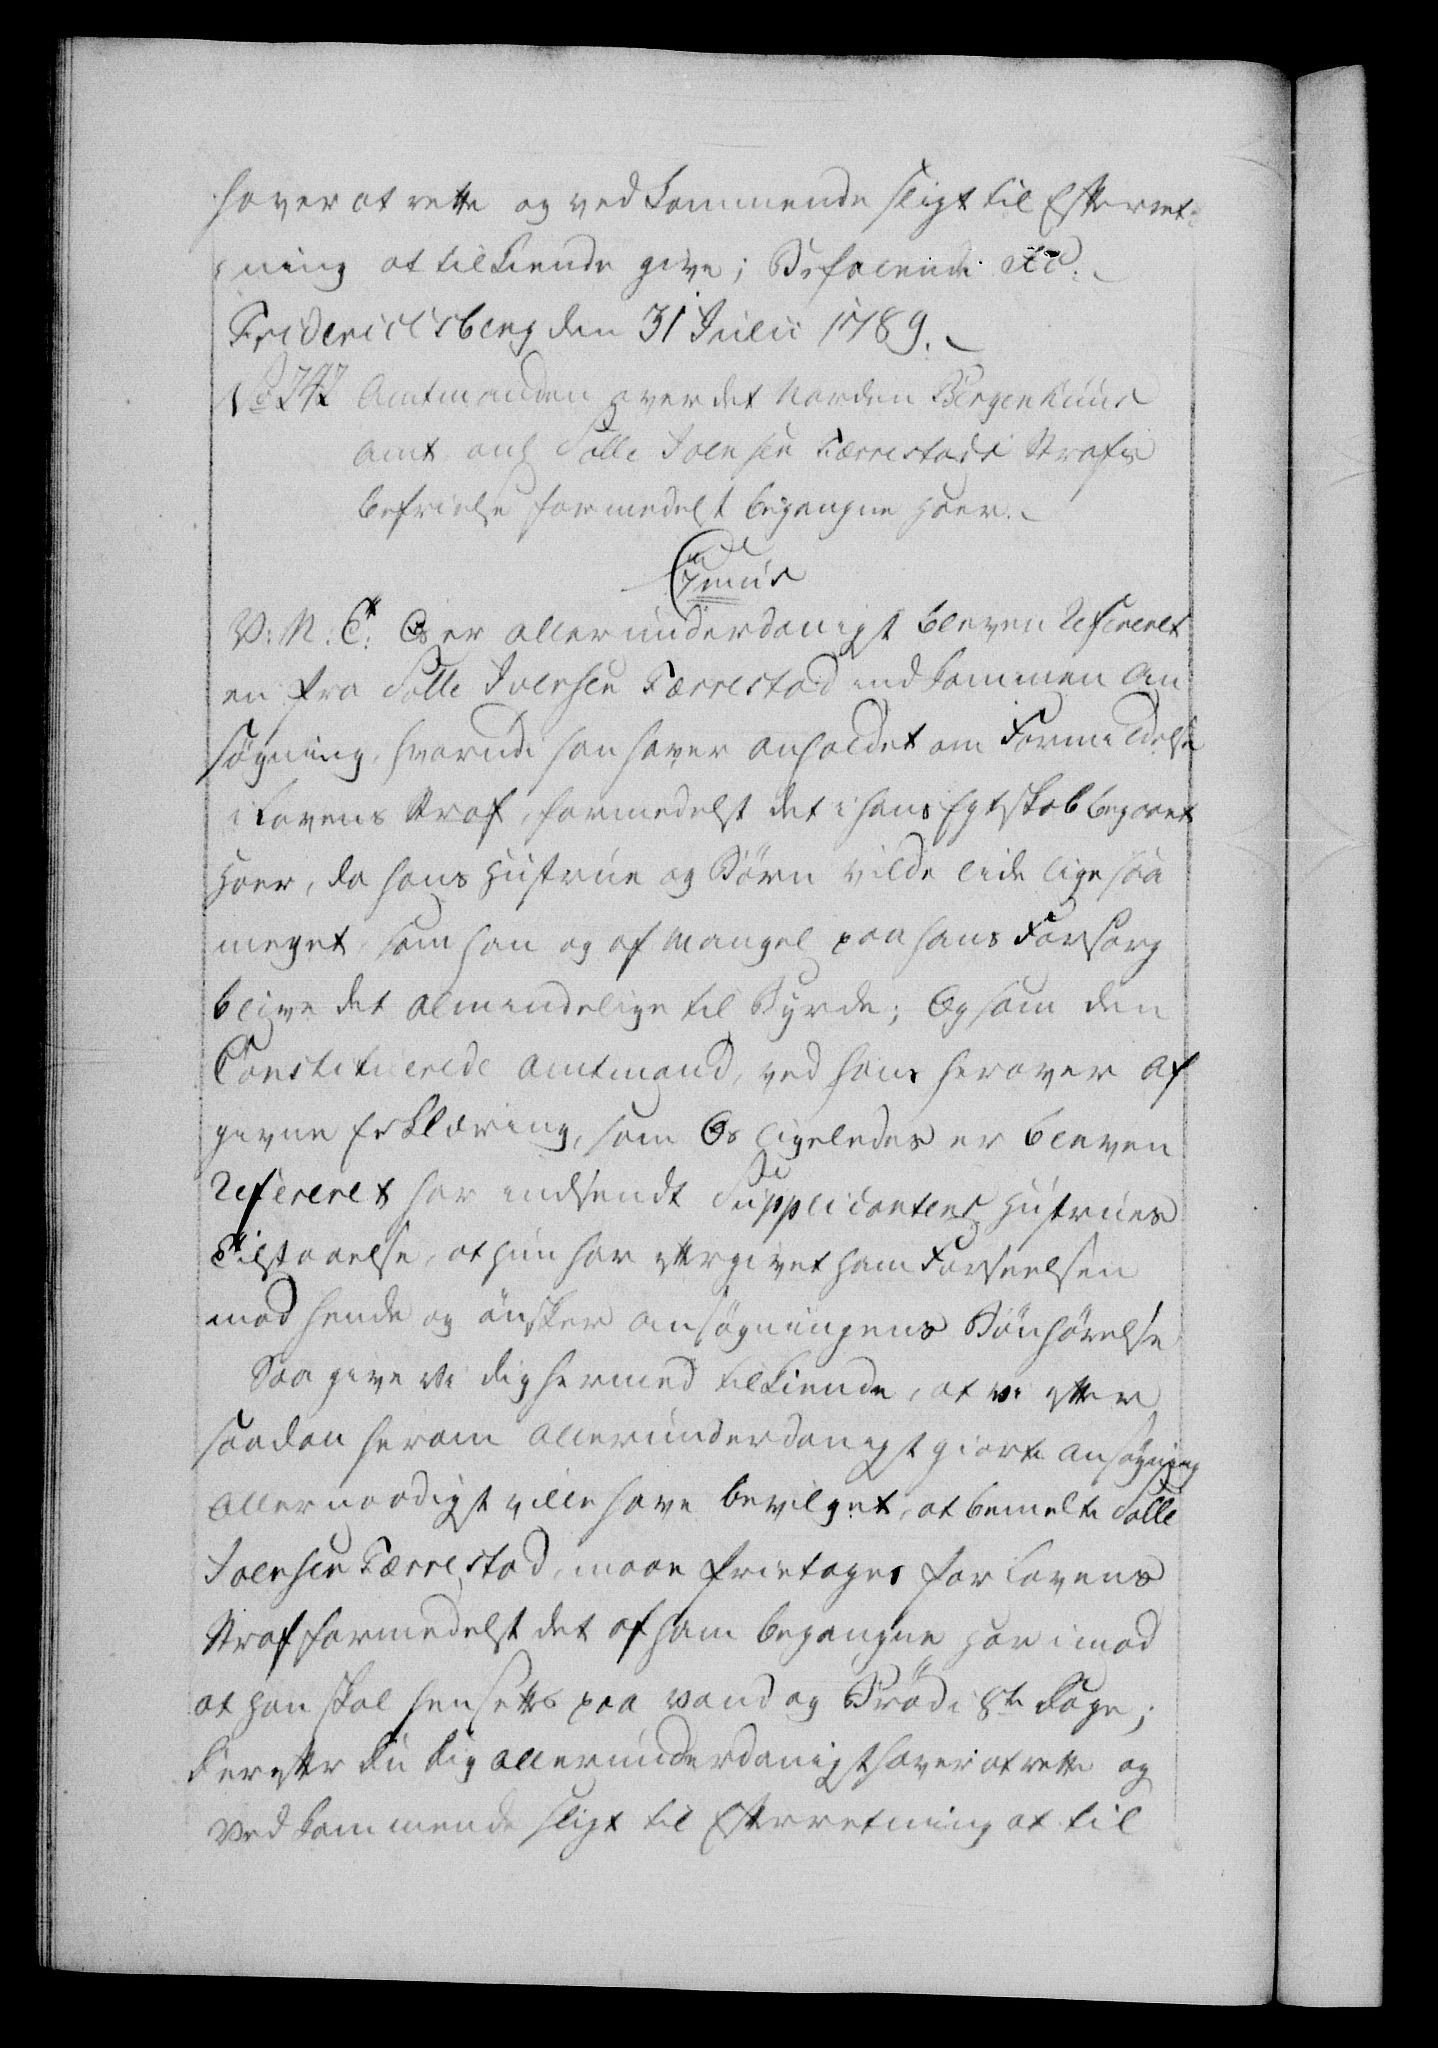 haver at rette og vedkommende sligt til Efterret-
ning at tilkiende give; Befalende etc.
Friderichsberg den 31 Julii 1789.
No 747 Amtmanden over det Norden Bergenhuus
Amt ang Salle Joensen Tærrestads Straffs
befrielse formedelst begangne Hoer.
C 7mus
V: N: T: Os er allerunderdanigst bleven Refereret
en fra Salle Joensen Tærrestad indkommen An
søgning, hvorudi han haver anholdet om Formildelse
i Lovens Straf, formedelst det i hans Egteskab begaaet
Hoer, da hans Hustrue og Børn vilde lide lige saa
meget, som han og af Mangel paa hans Forsorg
blive det almindelige til Byrde; Og som den
Constituerede Amtmand, ved hans herover af
givne Erklæring, som Os ligeledes er bleven
Refereret har indsendt Supplicantens Hustrues
Tilstaaelse, at hun har eftergivet ham Forseelsen
mod hende og ønsker Ansøgningens Bønhørelse
Saa give vi dig hermed tilkiende, at vi efter
saadan herom allerunderdanigst giorte Ansøgning
Allernaadigst ville have bevilget, at bemelte Salle
Joensen Tærrestad, maae frietages for Lovens
Straf formedelst det af ham begangne Hor imod
at han skal hensettes paa Vand og Brød i 8te Dage;
Derefter du dig allerunderdanigst haver at rette og
Vedkommende sligt til Efterretning at til